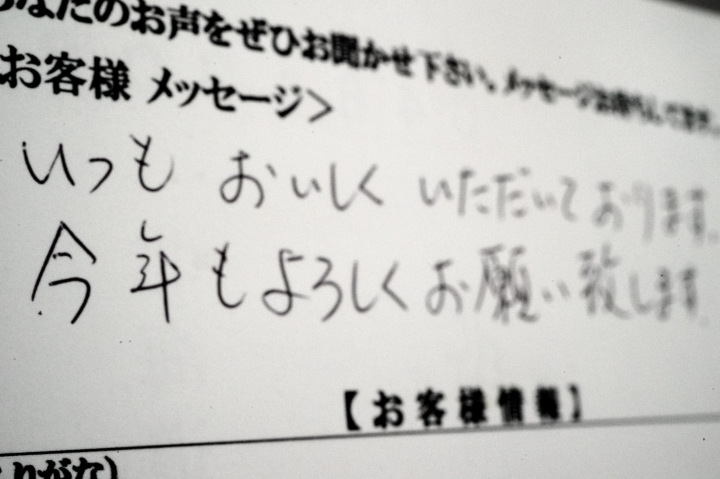 あなたのお声をぜひお聞かせ下さい。メッセージお待ちしてます。
お客様 メッセージ>
いつも おいしく いただいております。
今年もよろしくお願い致します。
【お客様情報】
りがな)